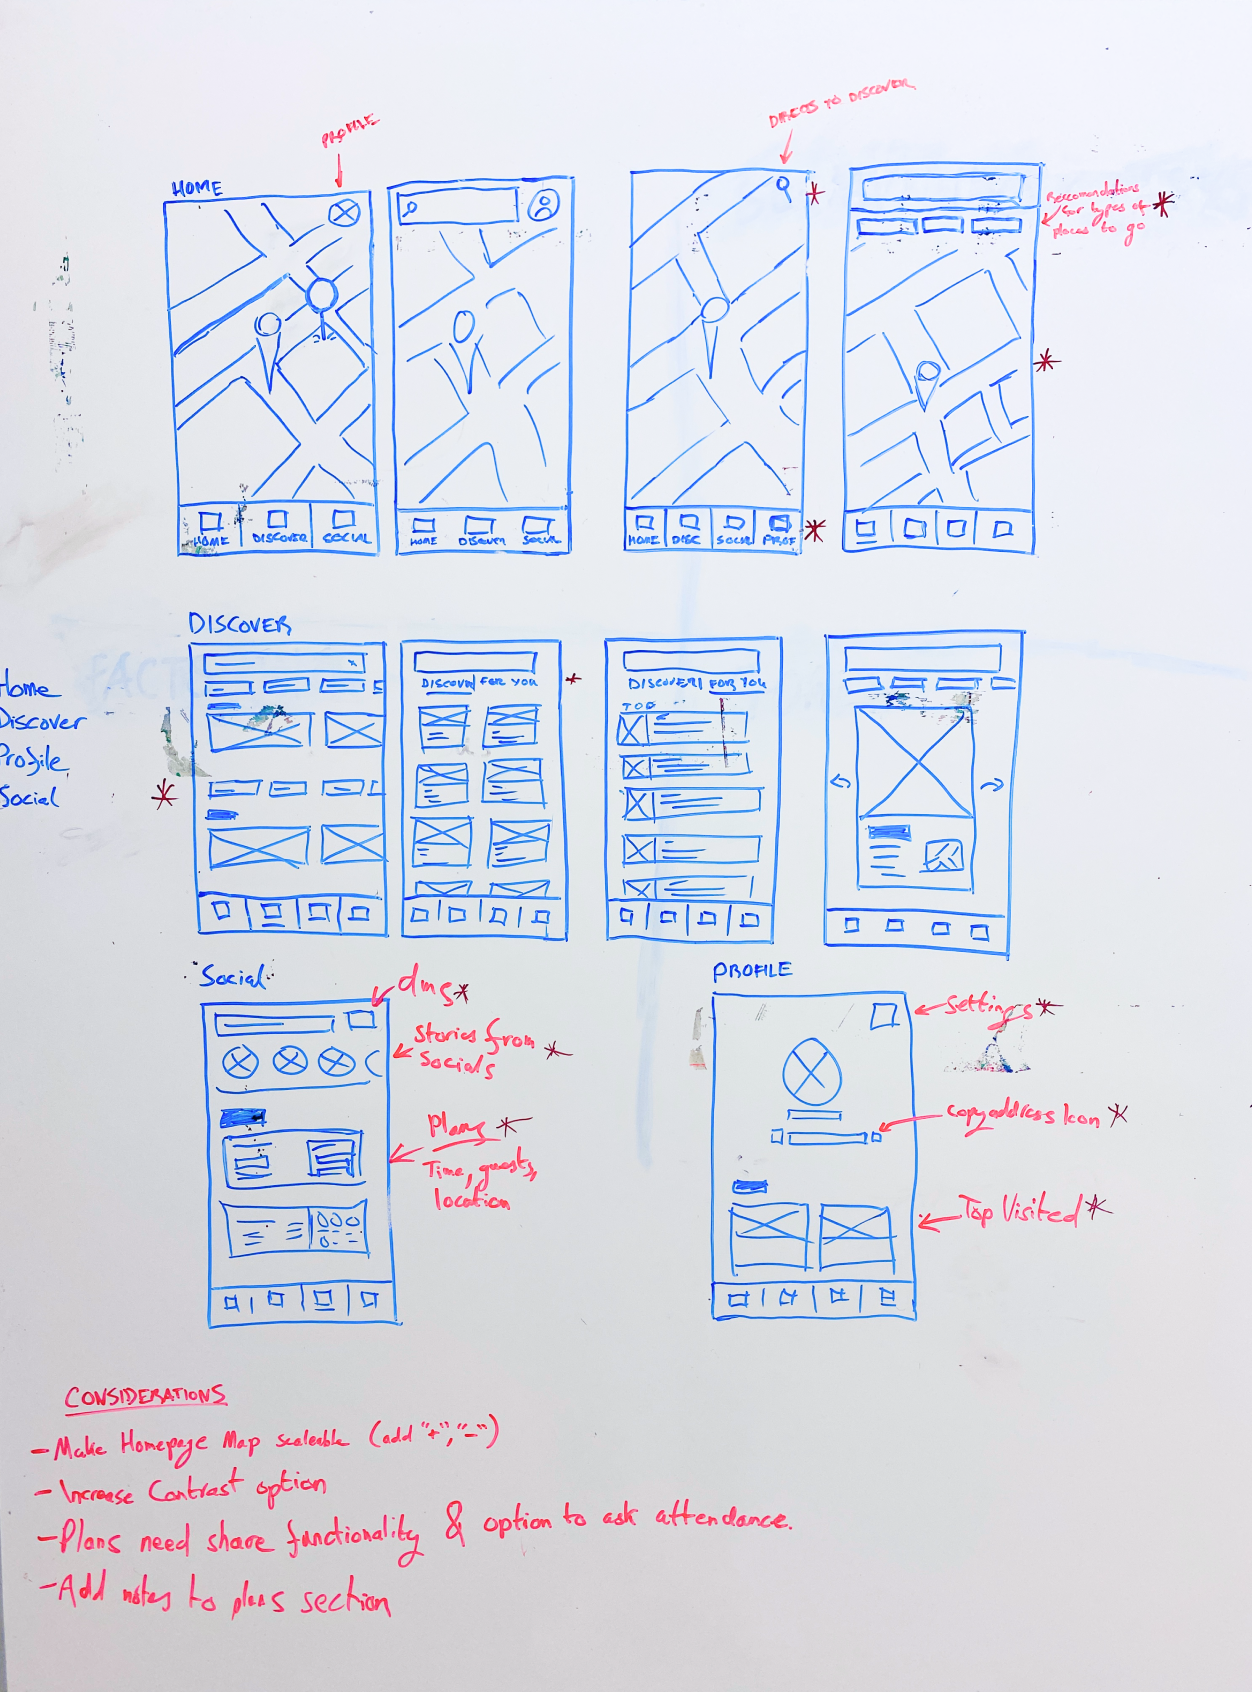 PROFILE
DIRECTS TO DISCOVER
HOME
Reccomendations
for types of
places to go
HOME DISCOVER SOCIAL
HOME DISCOVER SOCIAL
HOME DISC SOCIAL PROF
DISCOVER
Home
Discover
Profile
Social
DISCOVER FOR YOU
DISCOVER FOR YOU
Social
dms
Stories from
Socials
Plans
Time, guests,
location
PROFILE
Settings
Copy address Icon
Top Visited
CONSIDERATIONS
- Make Homepage Map scaleable (add "+", "-")
- Increase Contrast option
- Plans need share functionality & option to ask attendance.
- Add notes to plans section